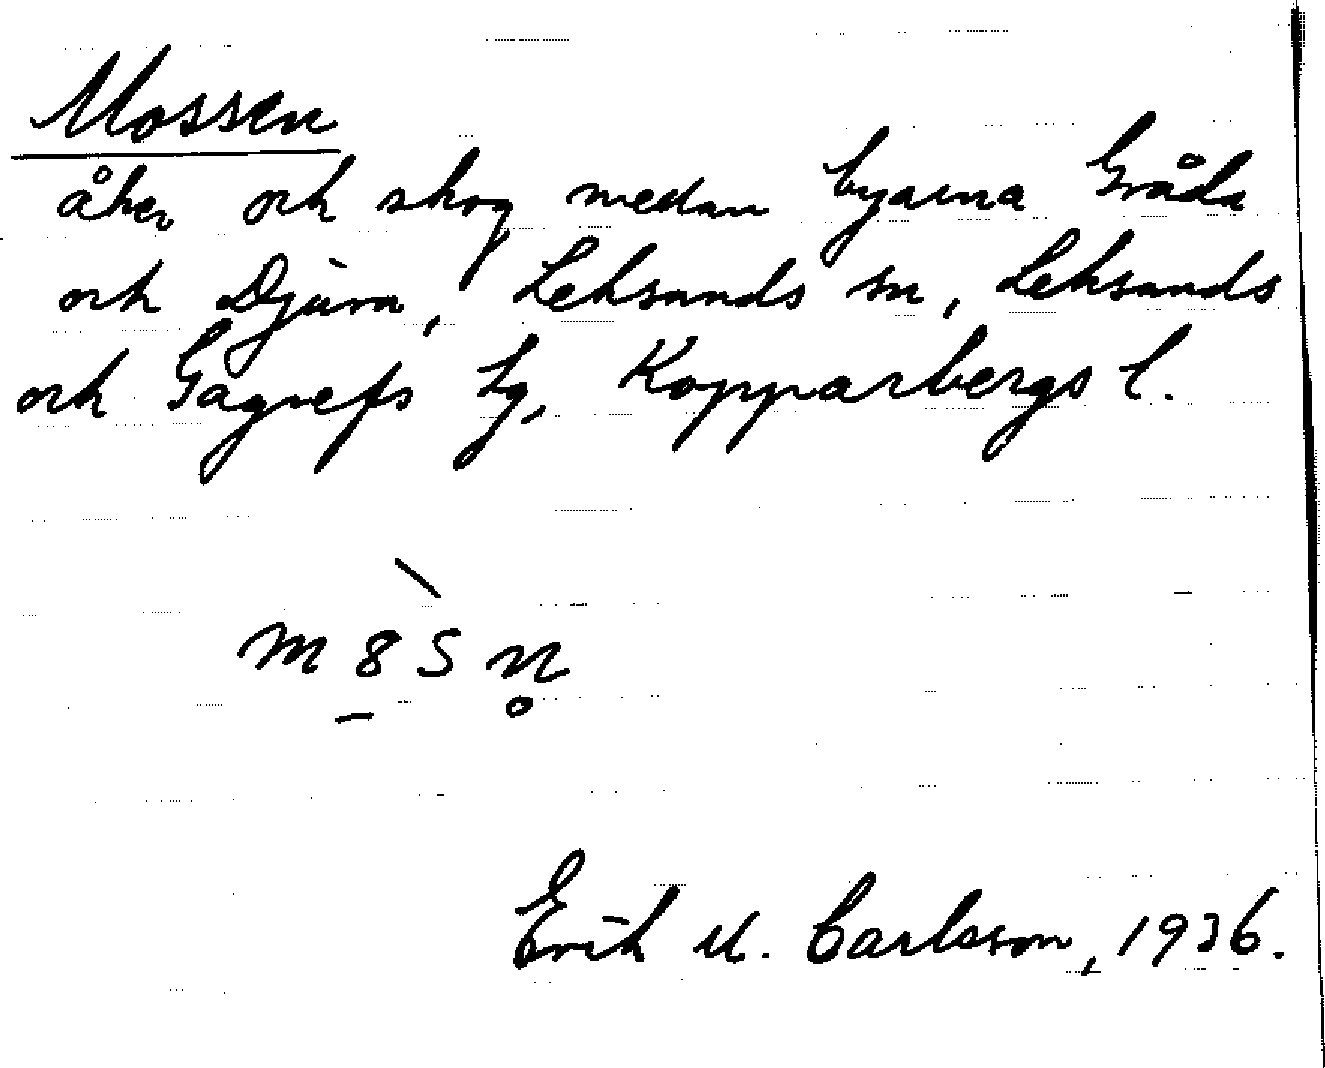 Mossen
åker och skog medan byarna Gråda
och Djura, Leksands sn, Leksands
och Gagnefs tg, Kopparbergs l.
m 8 s n
Erik M. Carlsson, 1936.